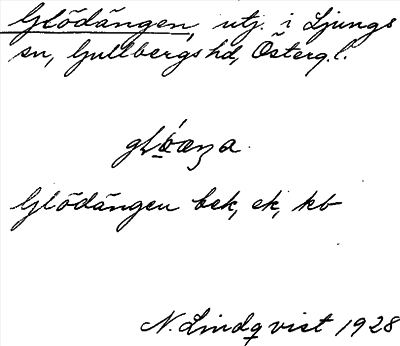 Glödängen, utj. i Ljungs
sn, Gullbergs hd, Österg. l.
Glödängen bek, ek, kb
N. Lindqvist 1928